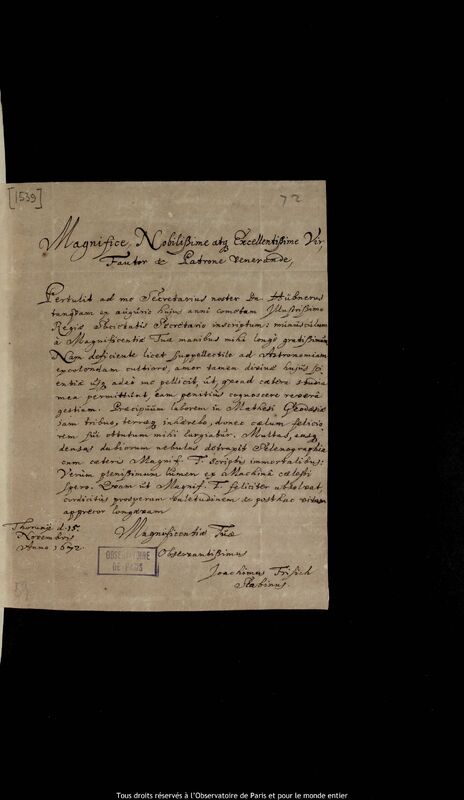 [1539]
72
Magnifice, Nobilißime atq Excellentißime Vir,
Fautor & Patrone venerande,
Pertulit ad me Secretarius noster Dn. Hübnerus
tandem ex auguriis hujus anni cometam Illustrissimo
Regiæ Societatis Secretario inscriptum: munusculum
à Magnificentiæ Tuæ manibus mihi longè gratissimum
Non deficiente licet suppellectile ad Astronomiam
excolendam cultiore, amor tamen divinæ hujus sci-
entiæ usq adeò me pellicit, ut, quoad cætera studia
mea permittunt, eam penitius cognoscere reverà
gestiam. Præcipuum laborem in Mathesi Geodæsiæ
jam tribuo, terræq inhærebo, donec cælum felicio-
rem sui obtutum mihi largiatur. Multas, easq
densas dubiorum nebulas detraxit Selenographia
cum cæteris Magnif. T. scriptis immortalibus:
Verùm plenissimum lumen ex Machinâ cœlesti
spero. Quam ut Magnif. T. feliciter absolvat
cordicitus prosperam valetudinem & posthac vitam
apprecor longævam
Thorunii d. 15.
Novembris
Anno 1672.
Magnificentiæ Tuæ
Observantißimus
OBSERVATOIRE
DE PARIS
Joachimus Frisich
Slabinus.
Tous droits réservés à l'Observatoire de Paris et pour le monde entier